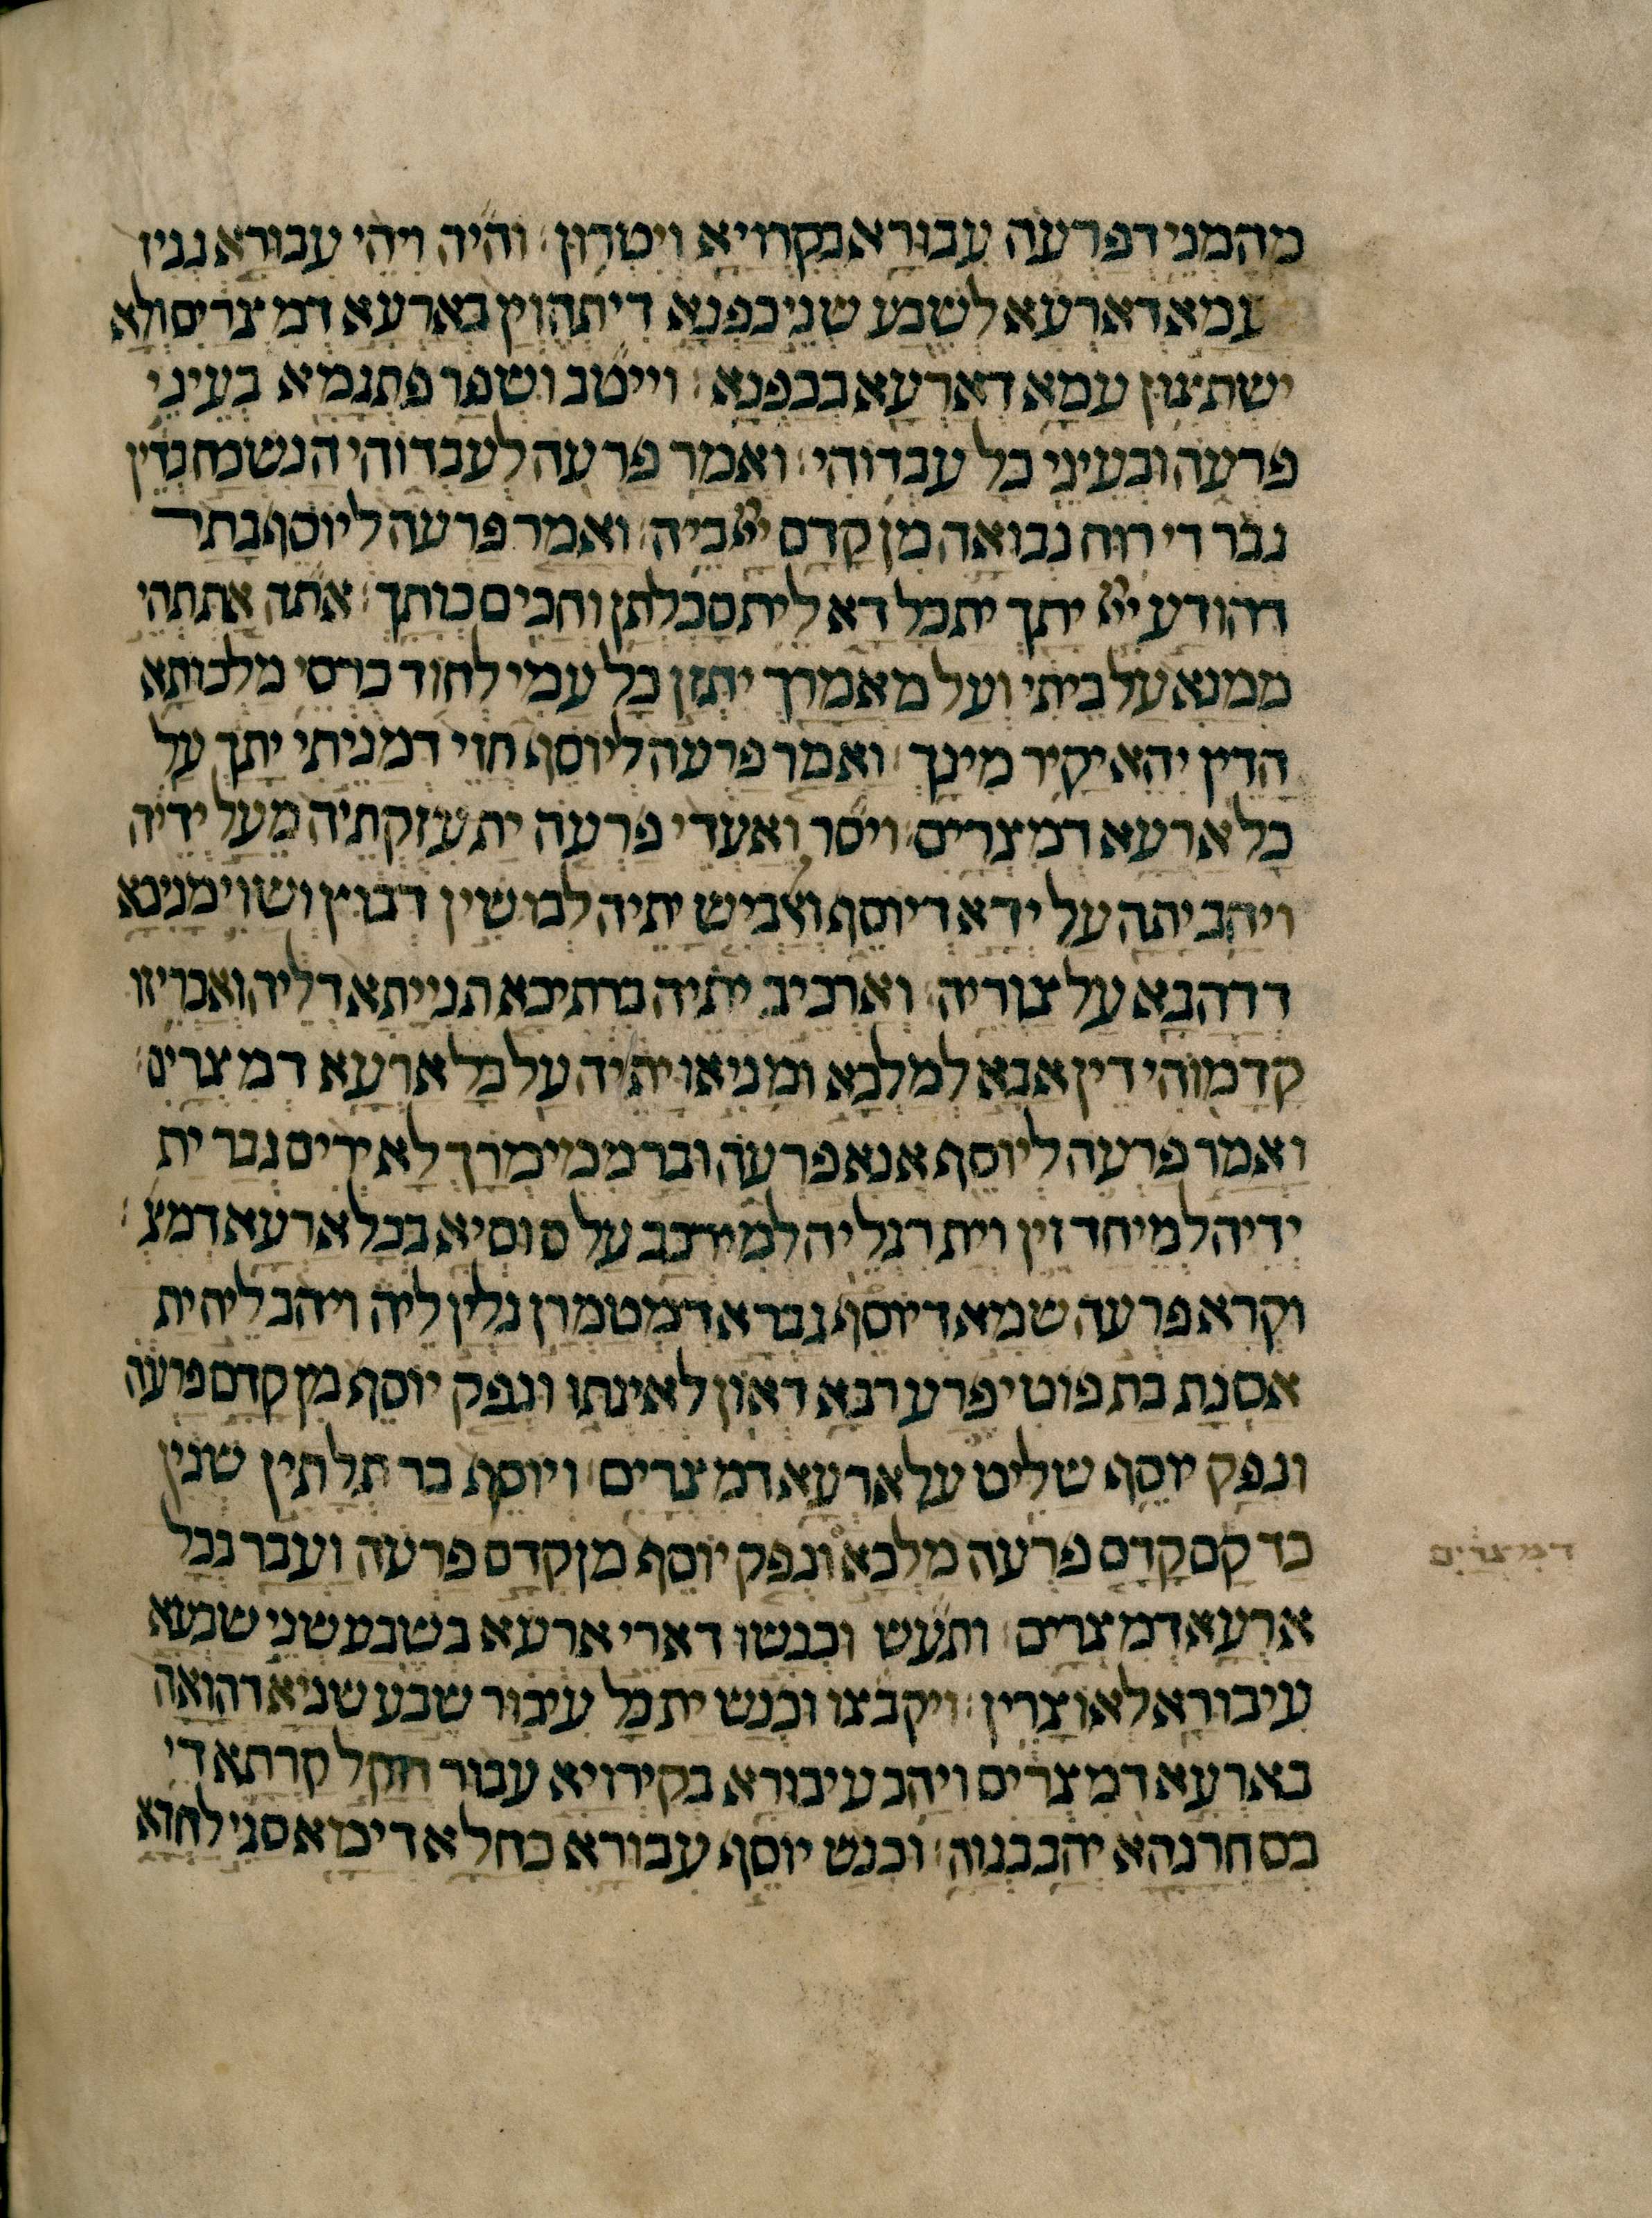 מהמני דפרעה עבורא בקרויא ויטרון׃ והיה ויהי עבורא גניז
עמא דארעא לשבע שני כפנא דיתהוין בארעא דמצרים ולא
ישתצון עמא דארעא בכפנא׃ וייטב ושפר פתגמא בעיני
פרעה ובעיני כל עבדוהי׃ ואמר פרעה לעבדוהי הנשמח כדין
גבר די רוח נבואה מן קדם ייי ביה׃ ואמר פרעה ליוסף בתר
דהודע ייי יתך ית כל דא לית סכלתן וחכים כותך׃ אתה את תהי
ממנא על ביתי ועל מאמרך יתזן כל עמי לחוד כרסי מלכותא
הדין יהא יקיר מינך׃ ואמר פרעה ליוסף חזי דמניתי יתך על
כל ארעא דמצרים׃ ויסר ואעדי פרעה ית עזקתיה מעל ידיה
ויהב יתה על ידא דיוסף ואלביש יתיה לבושין דבוץ ושוי מניכא
דדהבא על צוריה׃ וארכיב יתיה ברתיכא תנייתא דליה ואכריזו
קדמוהי דין אבא למלכא ומניאו יתיה על כל ארעא דמצרים׃
ואמר פרעה ליוסף אנא פרעה ובר ממימרך לא ירים גבר ית
ידיה למיחד זין וית רגליה למירכב על סוסיא בכל ארעא דמצ׃
וקרא פרעה שמא דיוסף גברא דמטמרן גלין ליה ויהב ליה ית
אסנת בת פוטיפרע רבא דאון לאינתו ונפק יוסף מן קדם פרעה
ונפק יוסף שליט על ארעא דמצרים׃ ויוסף בר תלתין שנין
כד קם קדם פרעה מלכא ונפק יוסף מן קדם פרעה ועבר בכל
דמצרים
ארעא דמצרים׃ ותעש וכנשו דארי ארעא בשבע שני שבעא
עיבורא לאוצרין׃ ויקבצו וכנש ית כל עיבור שבע שניא דהואה
בארעא דמצרים ויהב עיבורא בקירויא עבור חקל קרתא די
בסחרנהא יהב בגוה׃ וכנש יוסף עבורא כחלא דימא סגי לחדא